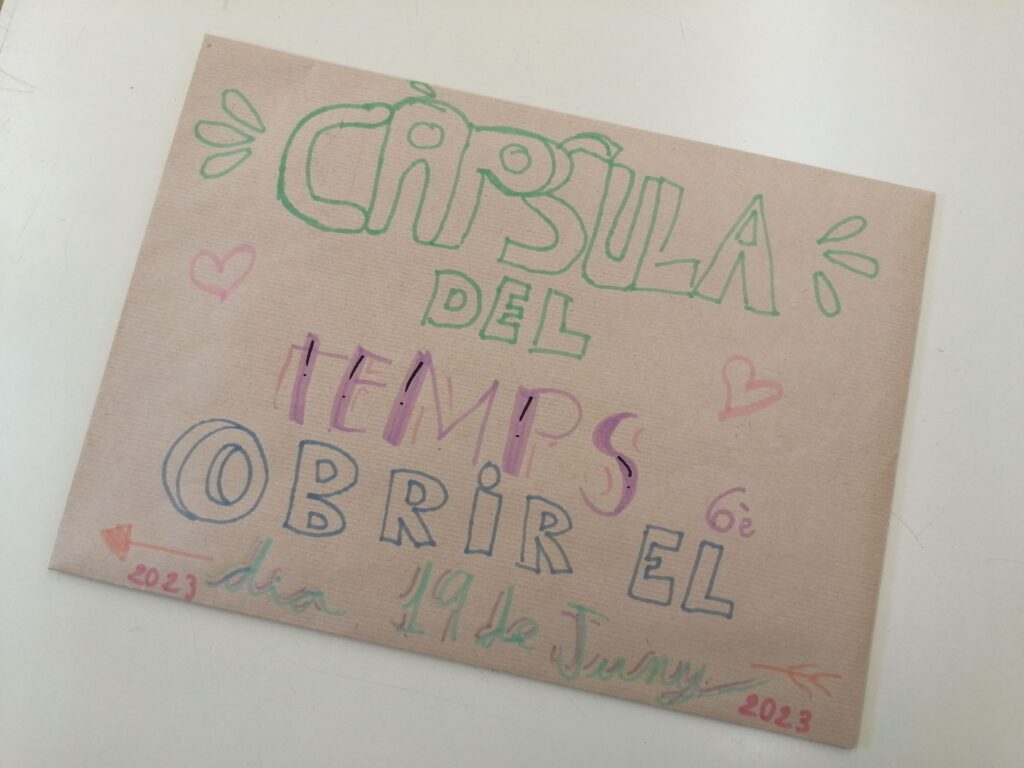 CÀPSULA
DEL
TEMPS
6è
OBRIR EL
2023 dia 19 de Juny 2023